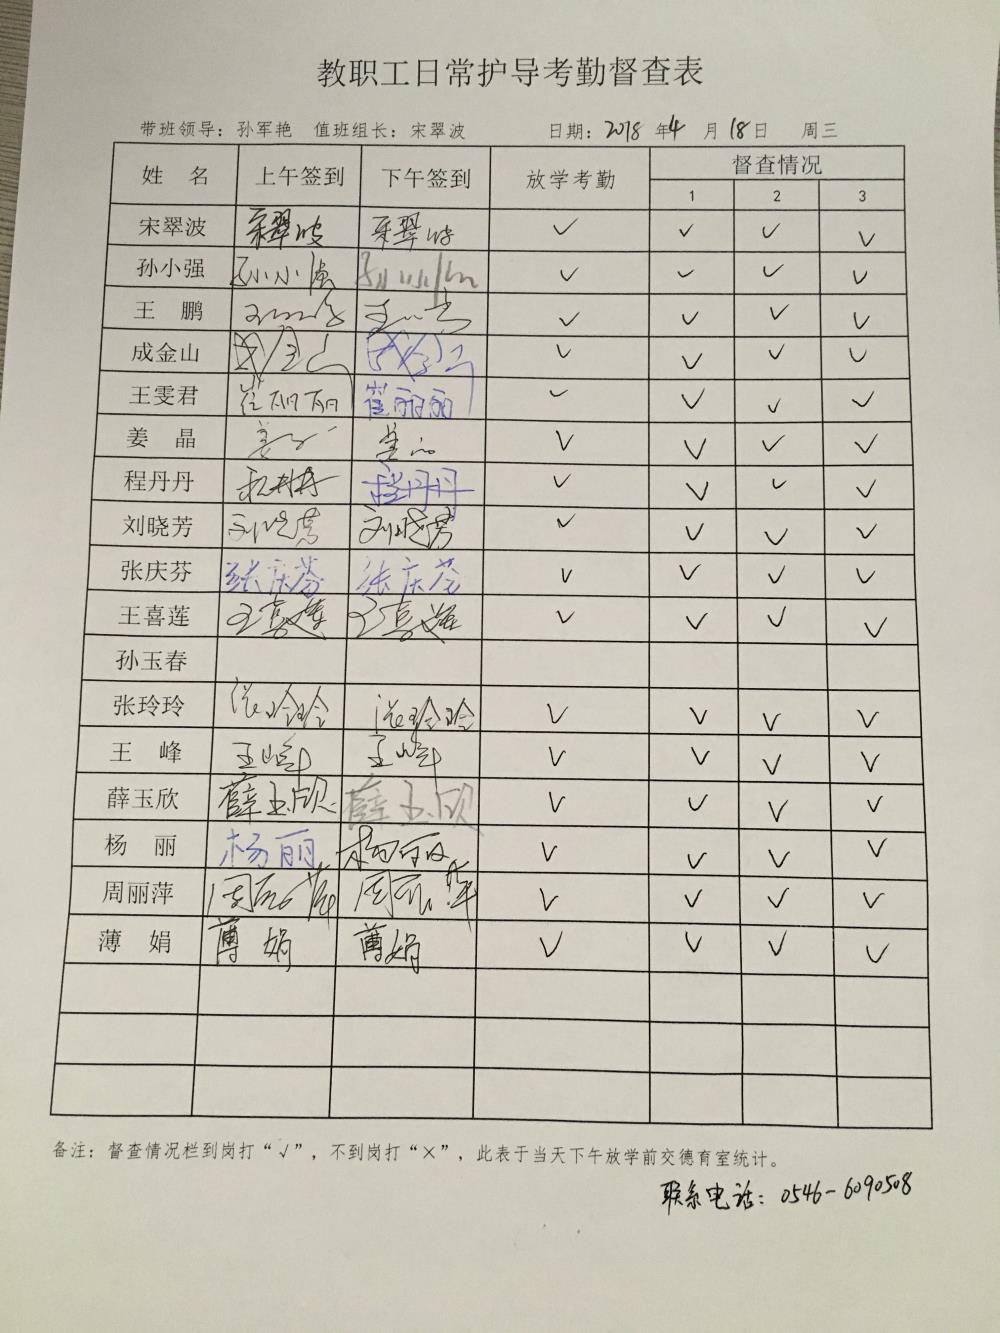 教职工日常护导考勤督查表
带班领导：孙军艳 值班组长：宋翠波 日期：2018 年4 月18日 周三
姓 名 上午签到 下午签到 放学考勤 督查情况
1 2 3
宋翠波 宋翠波 宋翠波 ✓ ✓ ✓ ✓
孙小强 孙小强 ✓ ✓ ✓ ✓
王 鹏 ✓ ✓ ✓ ✓
成金山 成金山 成金山 ✓ ✓ ✓ ✓
王雯君 崔丽丽 崔丽丽 ✓ ✓ ✓ ✓
姜 晶 姜晶 ✓ ✓ ✓ ✓
程丹丹 程丹丹 程丹丹 ✓ ✓ ✓ ✓
刘晓芳 刘晓芳 刘晓芳 ✓ ✓ ✓ ✓
张庆芬 张庆芬 张庆芬 ✓ ✓ ✓ ✓
王喜莲 王喜莲 王喜莲 ✓ ✓ ✓ ✓
孙玉春
张玲玲 张玲玲 张玲玲 ✓ ✓ ✓ ✓
王 峰 王峰 王峰 ✓ ✓ ✓ ✓
薛玉欣 薛玉欣 薛玉欣 ✓ ✓ ✓ ✓
杨 丽 杨丽 杨丽 ✓ ✓ ✓ ✓
周丽萍 周丽萍 周丽萍 ✓ ✓ ✓ ✓
薄 娟 薄娟 薄娟 ✓ ✓ ✓ ✓
备注：督查情况栏到岗打“√”，不到岗打“×”，此表于当天下午放学前交德育室统计。
联系电话：0546-6090508